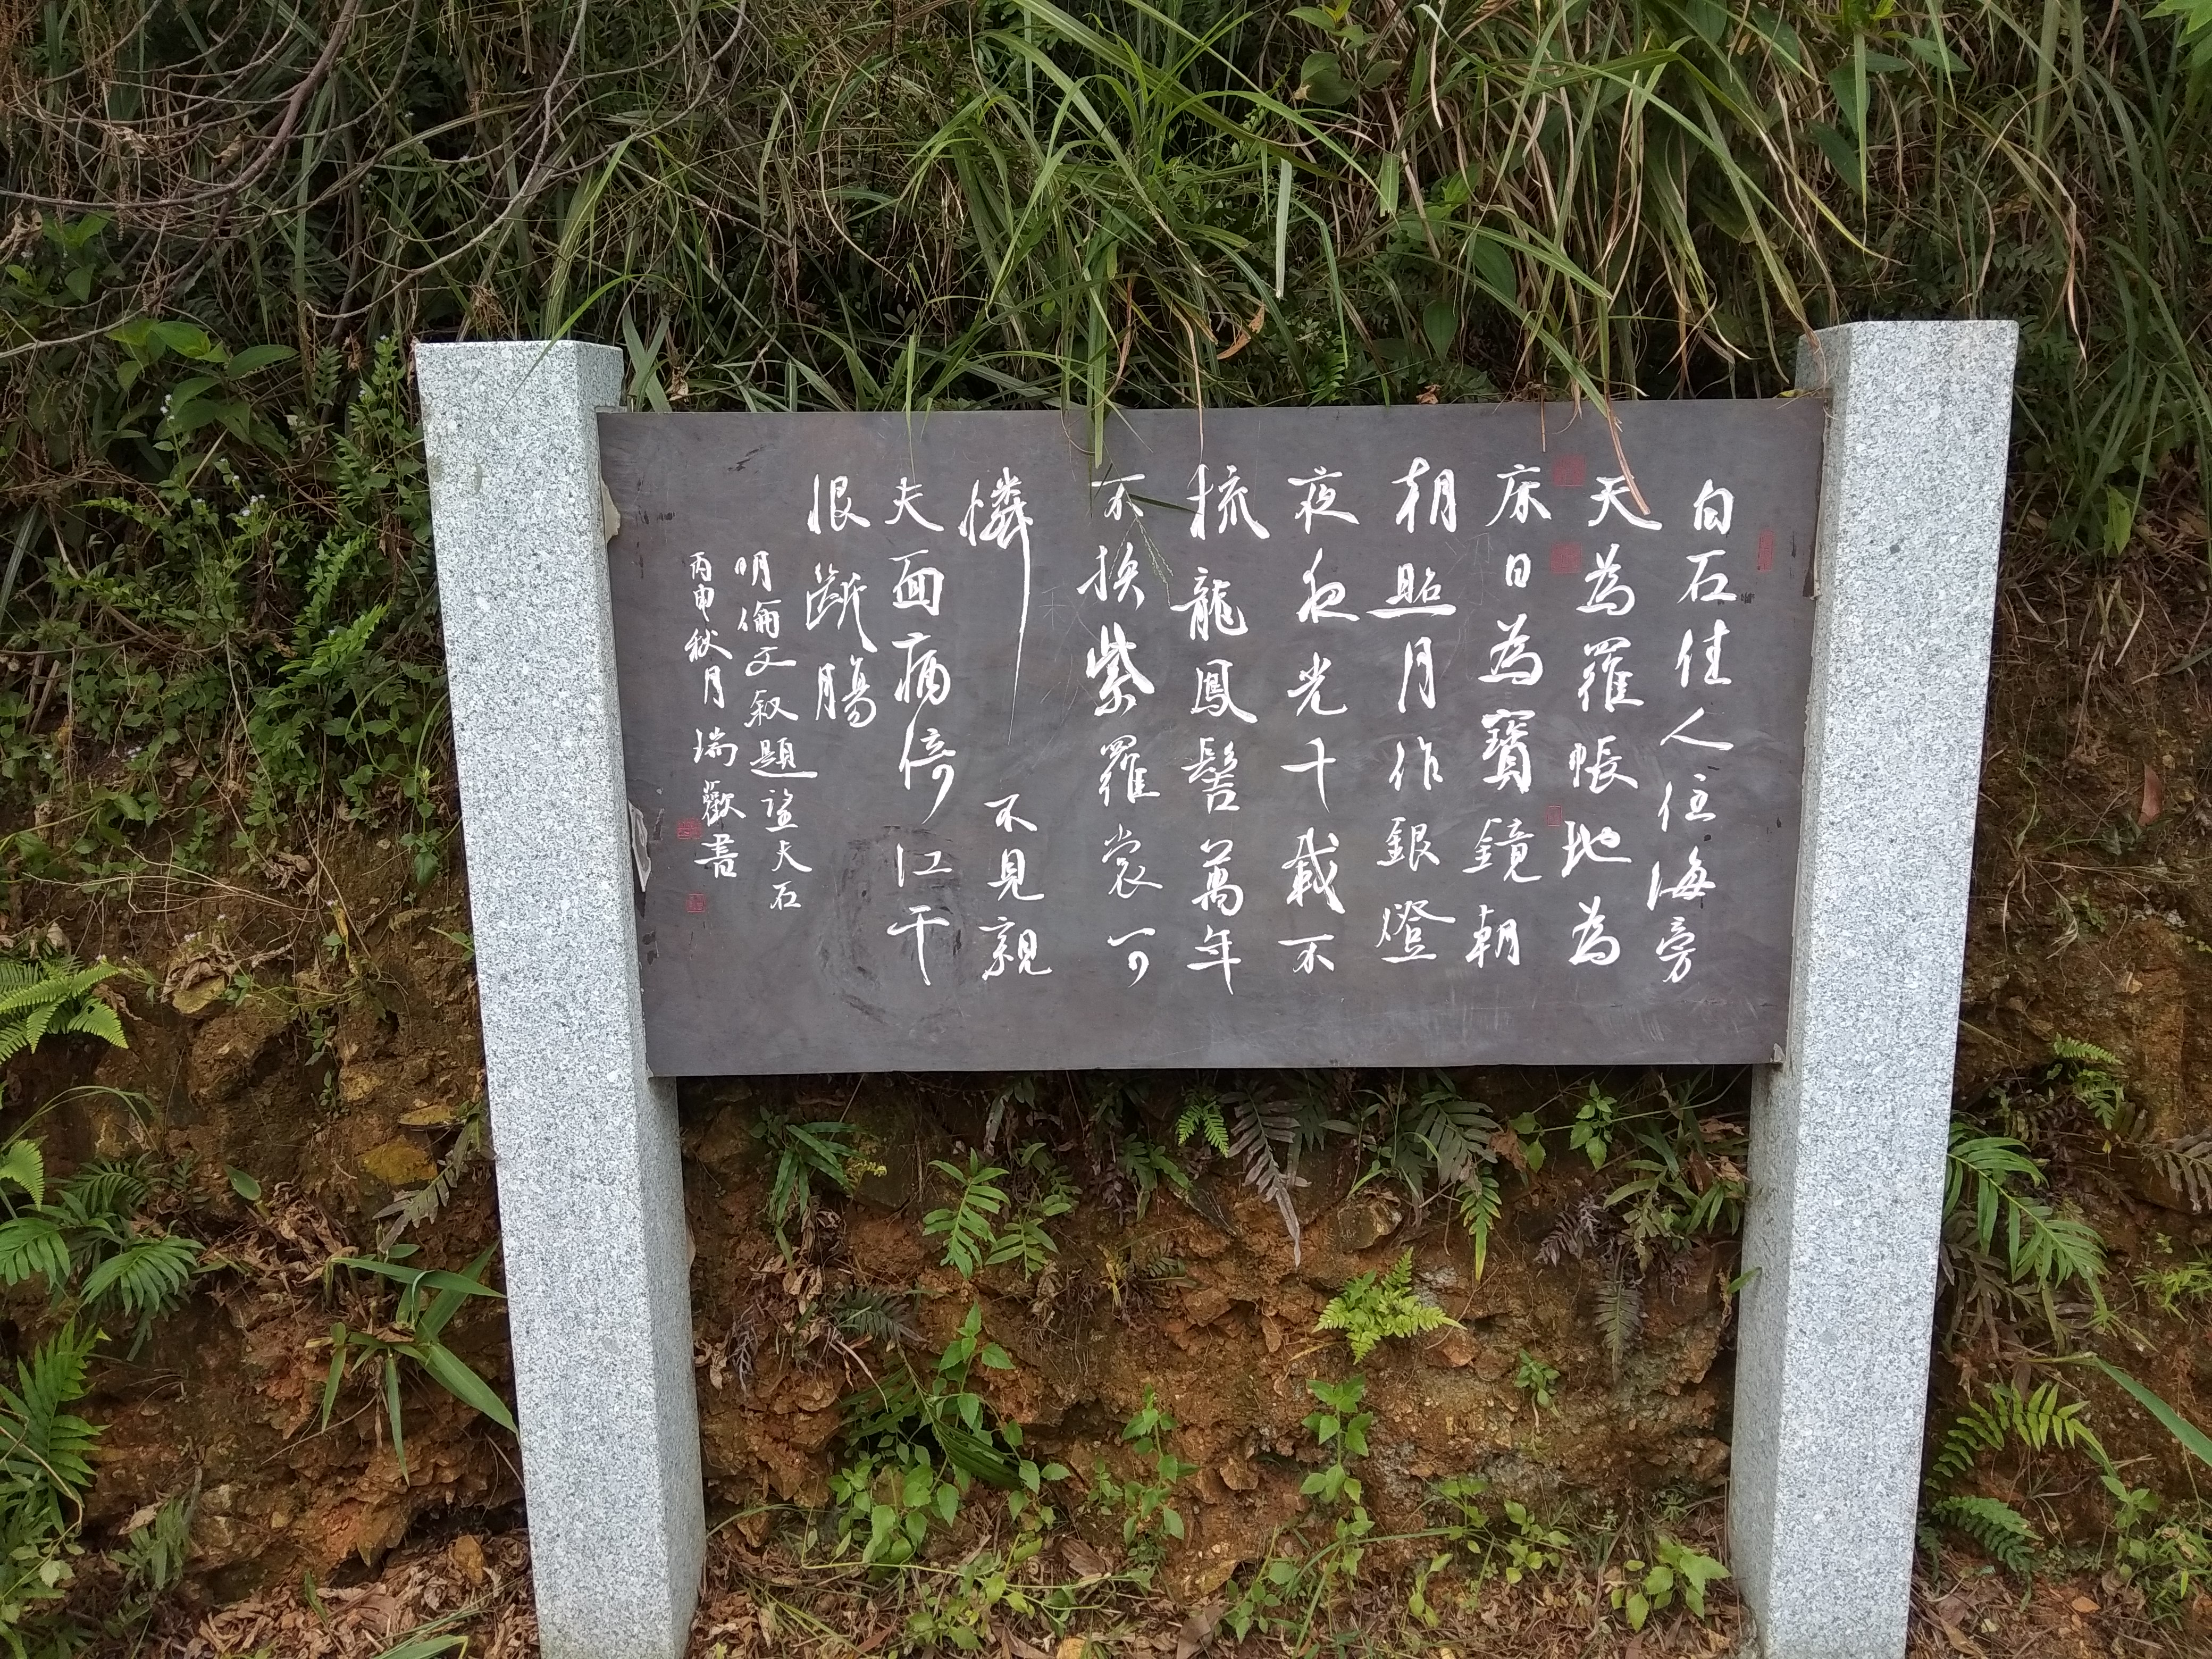 白石佳人住海旁
天為羅帳地為
床日為寶鏡朝
朝照月作銀燈
夜夜光十載不
梳龍鳳髻萬年
不換紫羅裳可
憐不見親
夫面痛倚江干
恨斷腸
明倫文叙題望夫石
丙申秋月瑞歡書